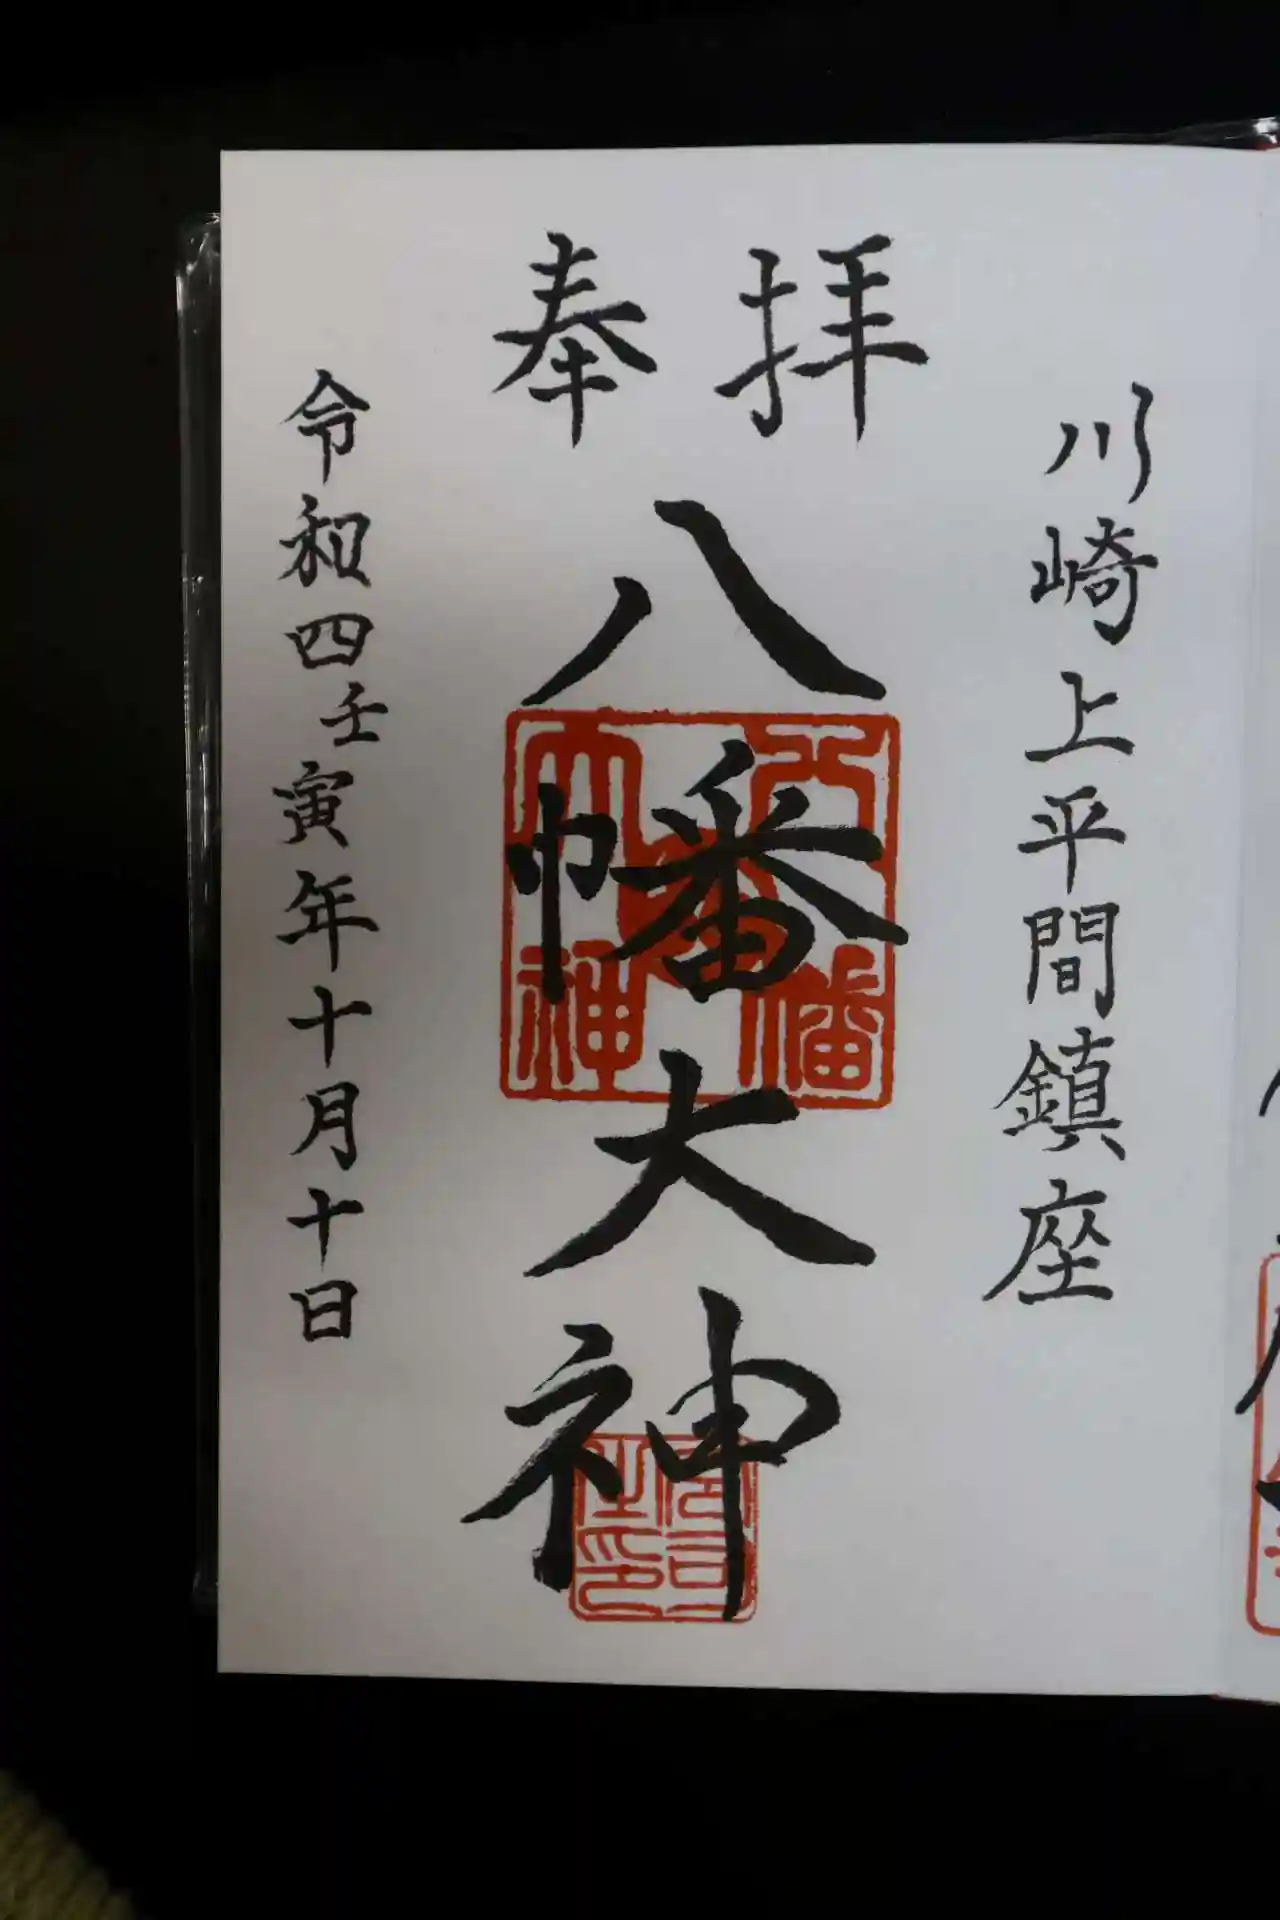 川崎上平間鎮座
奉拝
八幡大神
八幡大神
宮司之印
令和四壬寅年十月十日